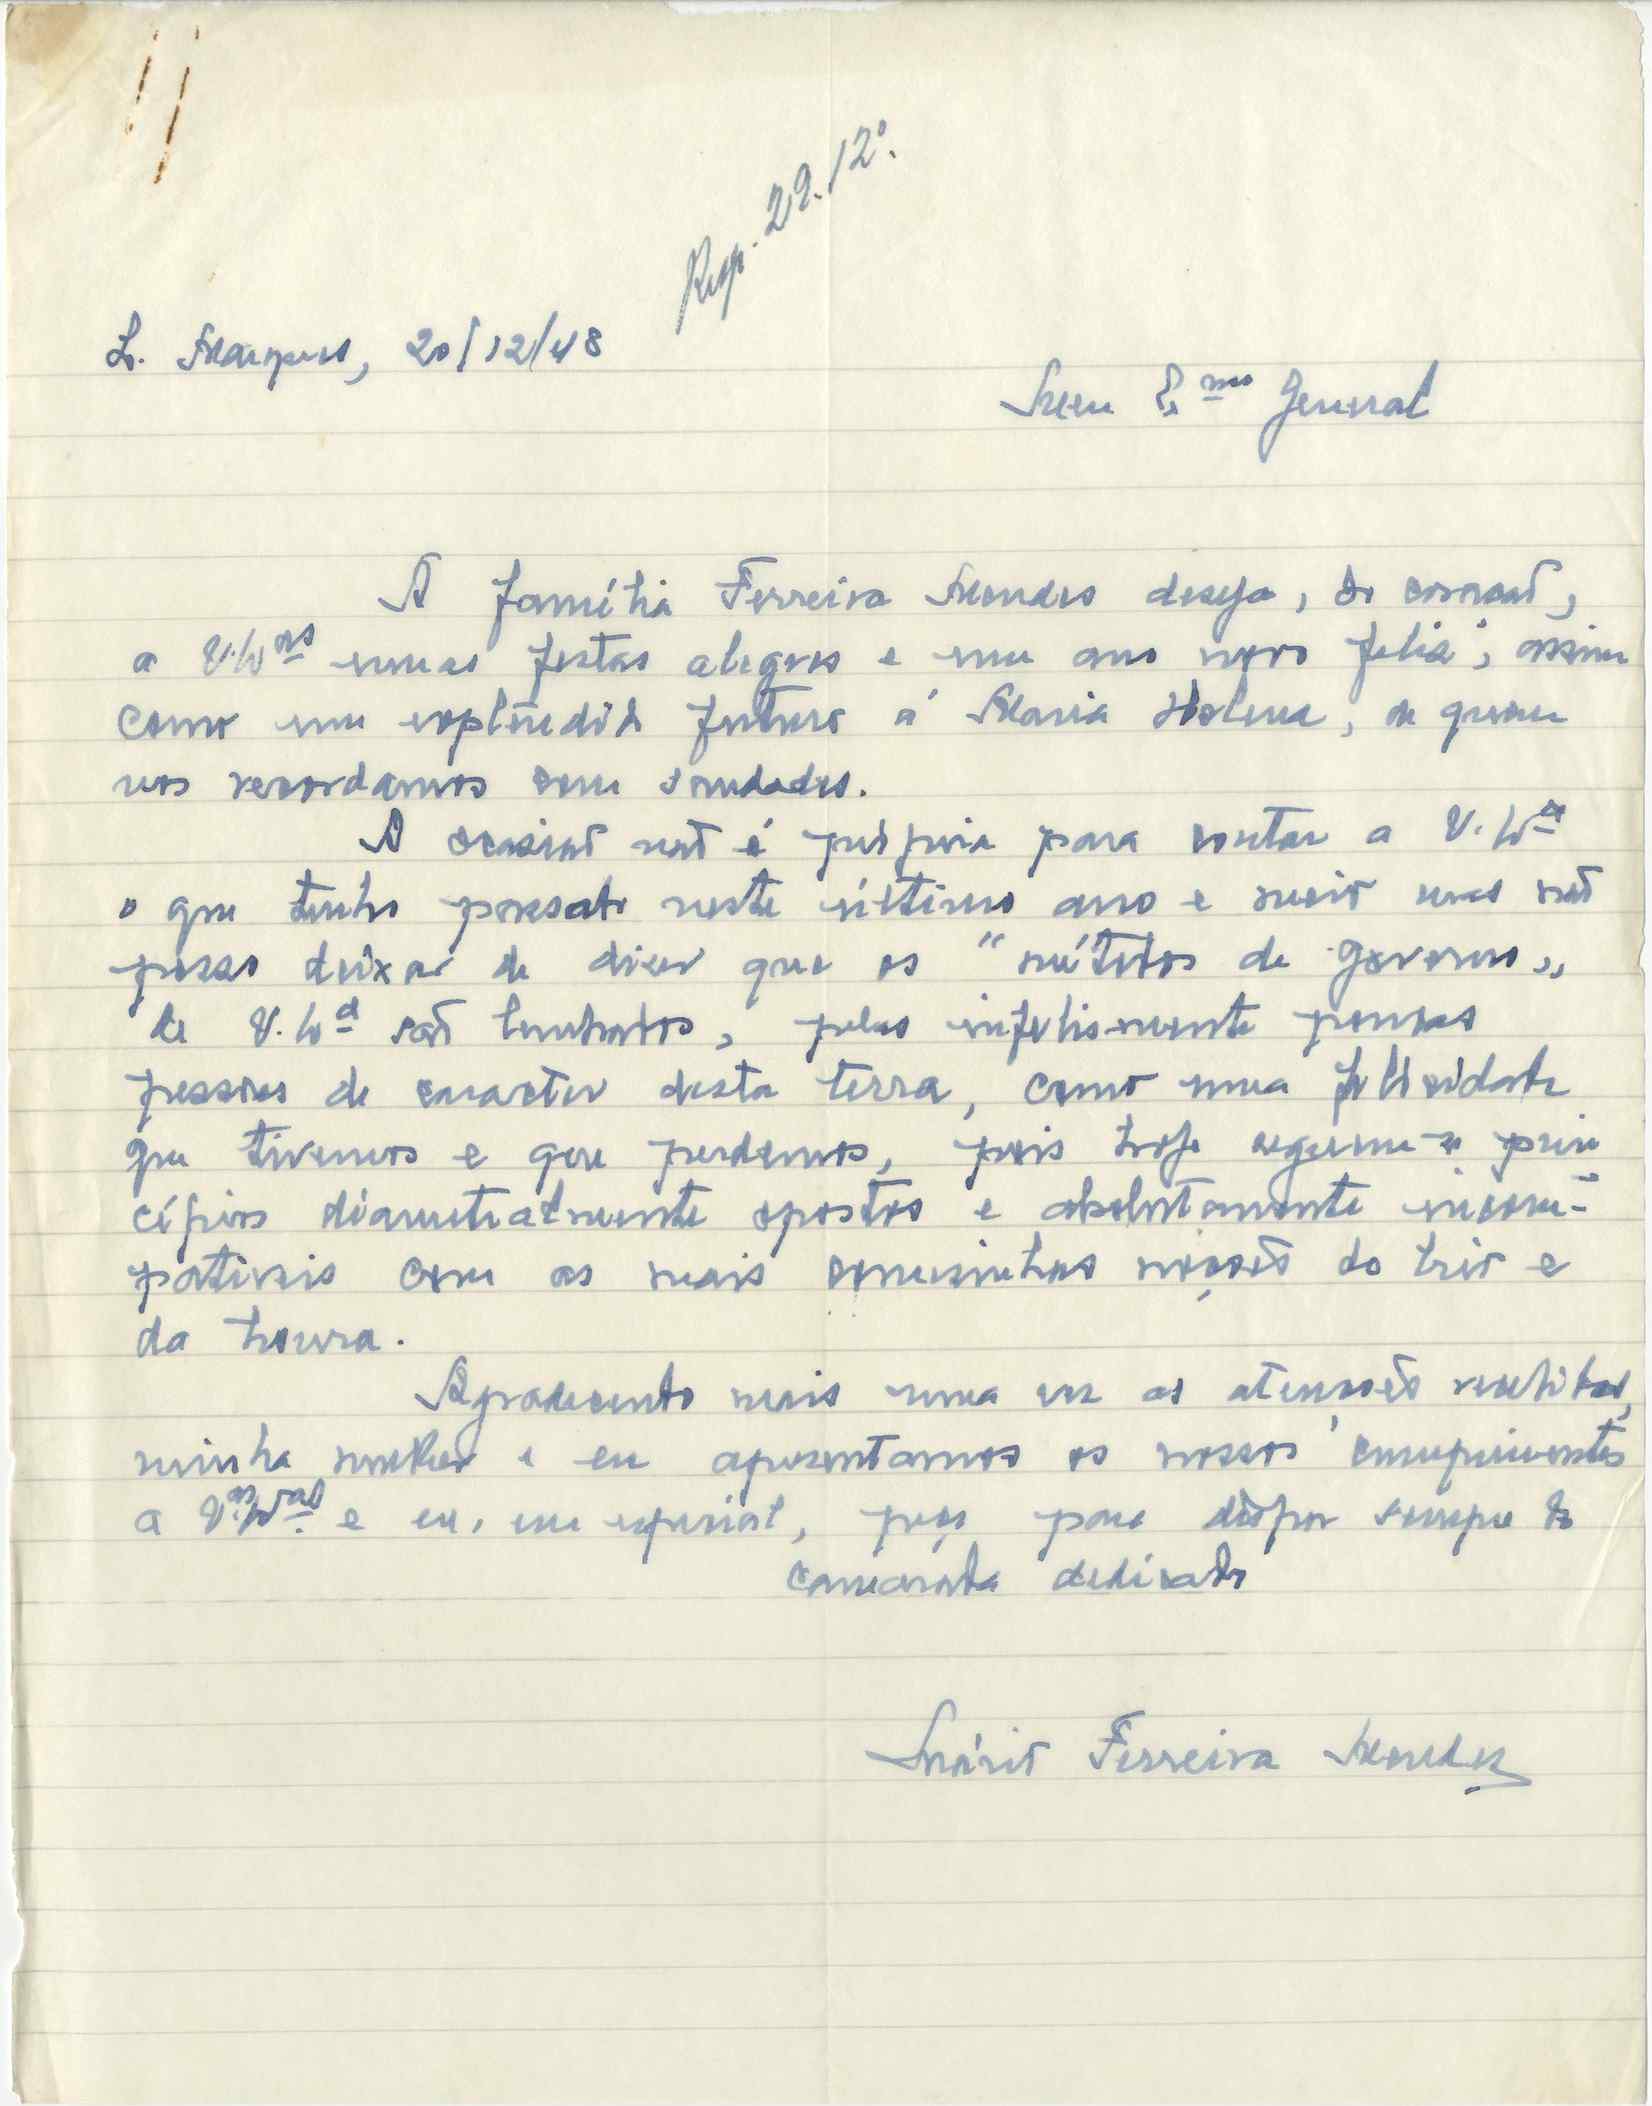 Resp. 29.12º.
L. Marques, 20/12/48
Meu Exmo General
A família Ferreira Mendes deseja, do coração,
a V. Exas umas festas alegres e um ano novo feliz, assim
como um esplendido futuro á Maria Helena, de quem
nos recordamos com saudades.
A ocasião não é própria para contar a V. Exa
o que tenho passado neste último ano e meio mas não
posso deixar de dizer que os "métodos de governo„
de V. Exa são lembrados, pelas infelismente poucas
pessoas de caracter desta terra, como uma felicidade
que tivemos e que perdemos, pois hoje seguem-se prin
cípios diametralmente opostos e absolutamente incom-
pativeis com as mais comesinhas noções do brio e
da honra.
Agradecendo mais uma vez as atenções recebidas,
minha mulher e eu apresentamos os nossos cumprimentos
a V.as Exas e eu, em especial, peço para dispor sempre do
camarada dedicado
Mário Ferreira Mendes